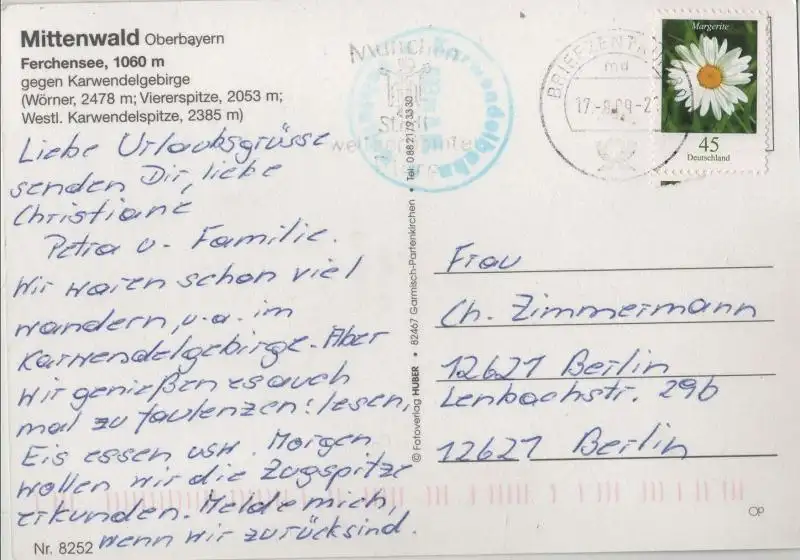 Mittenwald Oberbayern
Ferchensee, 1060 m
gegen Karwendelgebirge
(Wörner, 2478 m; Viererspitze, 2053 m;
Westl. Karwendelspitze, 2385 m)
Liebe Urlaubsgrüsse
senden Dir, liebe
Christiane
Petra u. Familie.
Wir waren schon viel
wandern, u.a. im
Karwendelgebirge. Aber
wir genießen es auch
mal zu faulenzen: lesen,
Eis essen usw. Morgen
wollen wir die Zugspitze
erkunden. Melde mich,
wenn wir zurücksind.
Nr. 8252
© Fotoverlag HUBER • 82467 Garmisch-Partenkirchen • Tel. 08821/93330
München
Stadt
Karwendelbahn
BRIEFZENTRUM
17.-8.09-2
Margerite
45
Deutschland
Frau
Ch. Zimmermann
12621 Berlin
Lenbachstr. 29b
12621 Berlin
OP